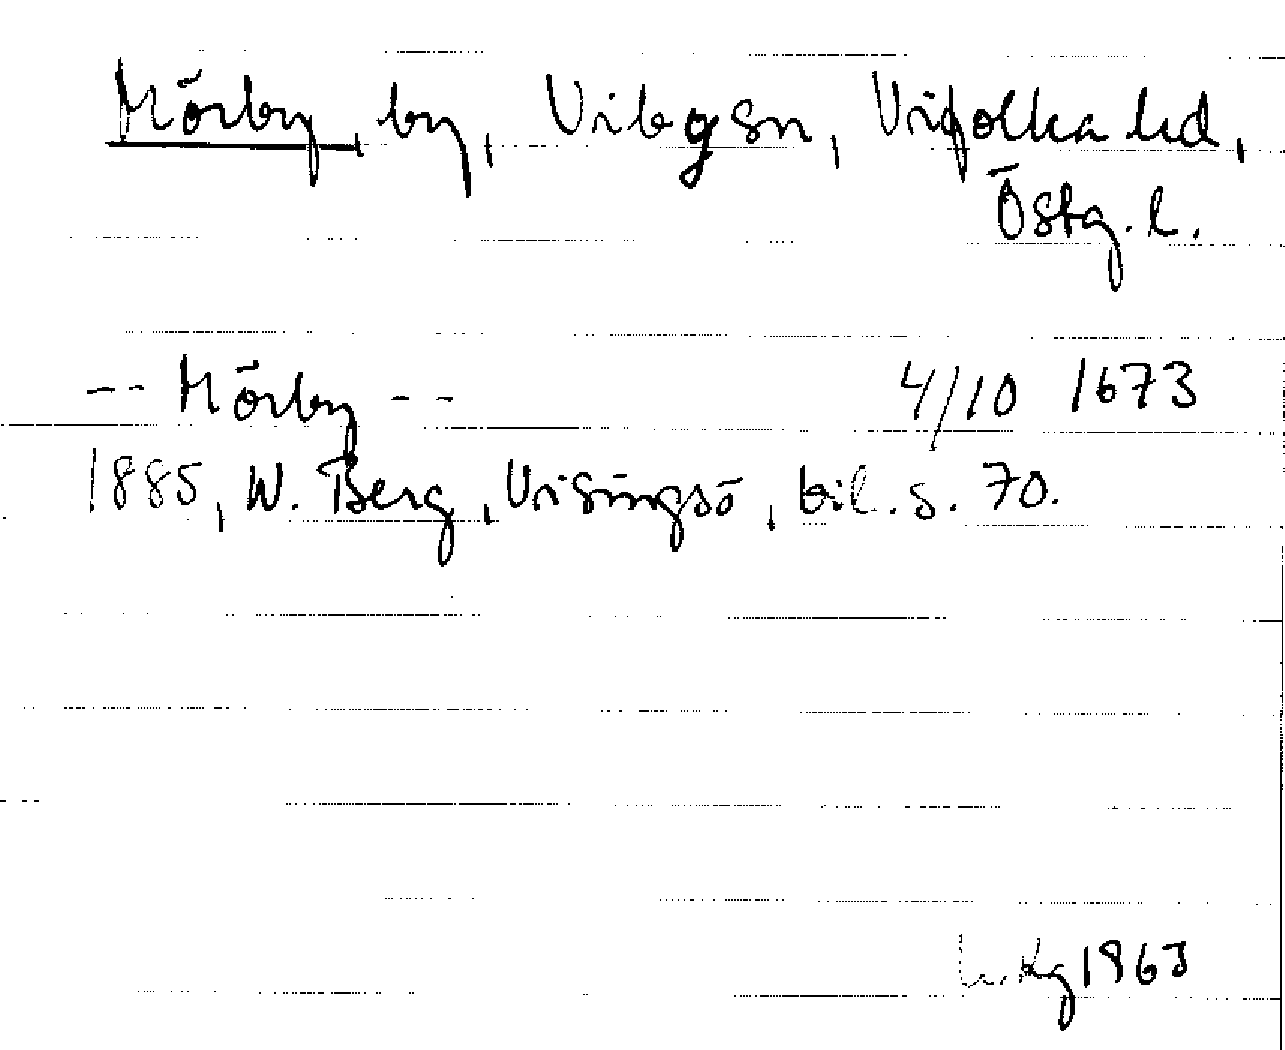 Mörby, by, Viby sn, Vifolka hd,
Östg. l.
-- Mörby -- 4/10 1673
1885, W. Berg, Visingsö, bil. s. 70.
1963